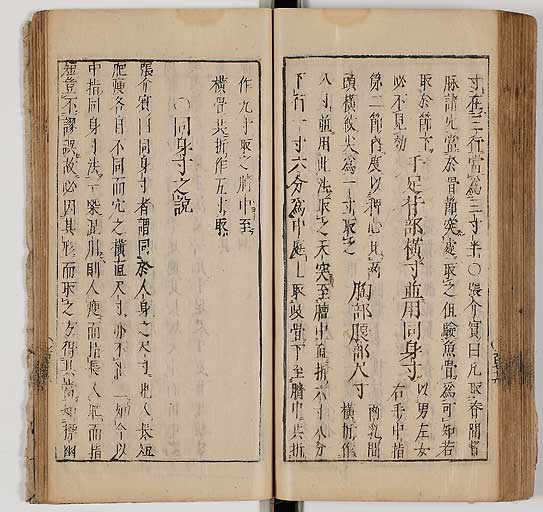 寸在三行當為三寸半○張介賓曰凡取脊間督
脉諸穴當於骨節突處取之但驗魚骨為可知若
取於節下必不見功
手足背部橫寸並用同身寸 以男左女右手中指
第二節內度以秤心比兩頭橫紋尖為一寸取之
胸部腹部尺寸 橫折作八寸並用此法取之 天突至膻中直折六寸八分
下行一寸六分為中庭上取岐骨下至臍中共折
作九寸取之臍中至
橫骨共折作五寸取
○同身寸之說
張介賓曰同身寸者謂同於人身之尺寸也人長短
肥瘦各自不同而穴之橫直尺寸亦不能一如今以
中指同身寸法一槩混用則人瘦而指長人肥而指
短豈不謬誤故必因其形而取之方得其當如標幽